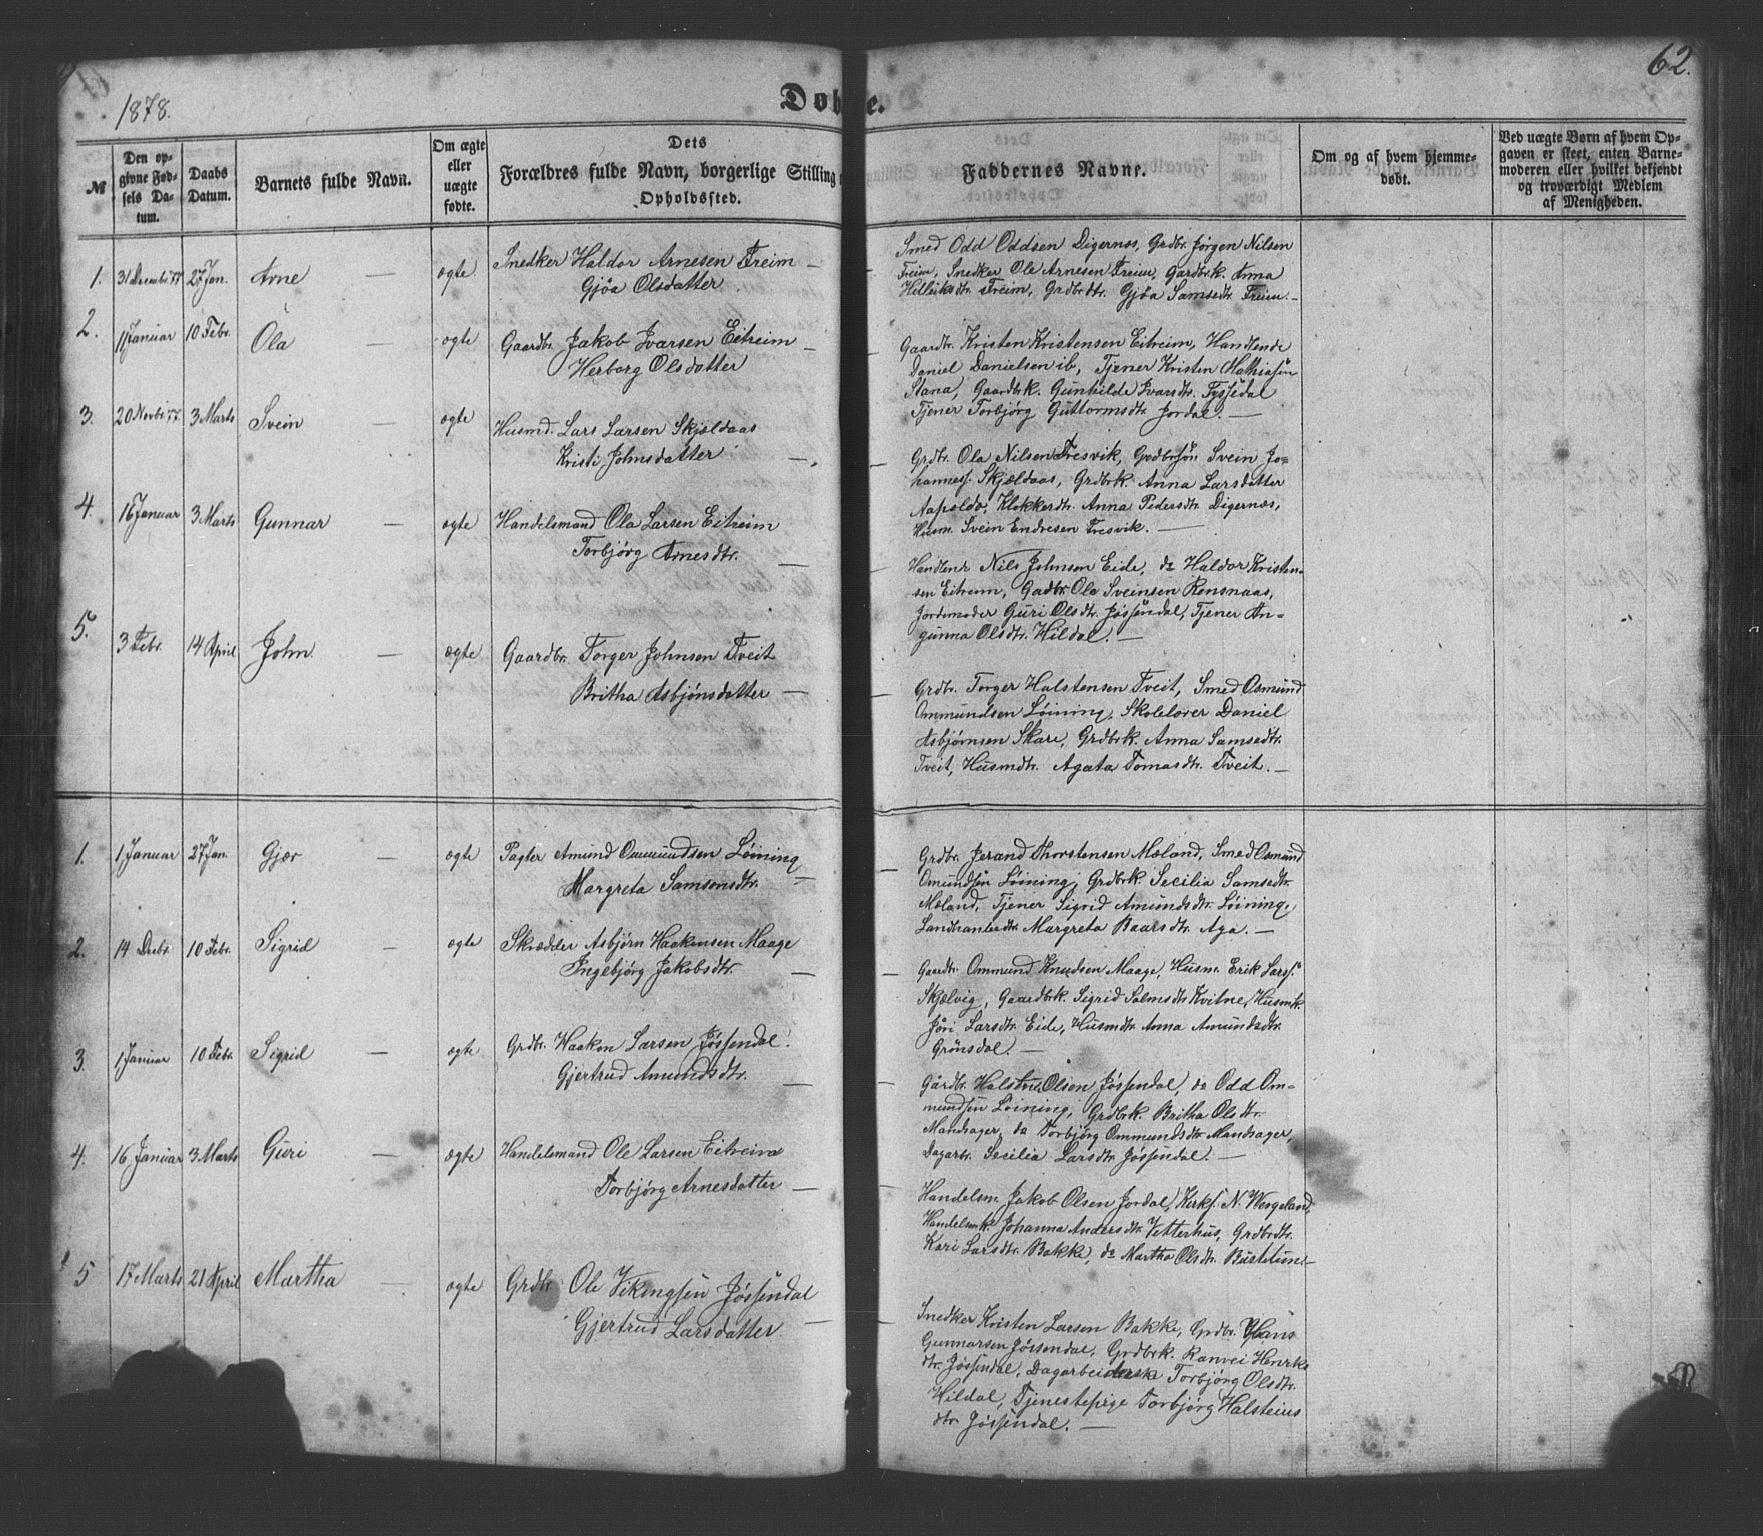 62.
1878.
Døbte.
№
Den opgivne Fødsels Datum.
Daabs Datum.
Barnets fulde Navn.
Om ægte eller uægte fødte.
Dets Forældres fulde Navn, borgerlige Stilling
Opholdssted.
Faddernes Navne.
Om og af hvem hjemmedøbt.
Ved uægte Børn af hvem Opgaven er skeet, enten Barnemoderen eller hvilket bekjendt og troværdigt Medlem af Menigheden.
1. 31 Decembr 77 27 Jan. Arne — ægte Snedker Haldor Arnesen Freim —
Gjøa Olsdatter
Smed Odd Oddsen Digernes, Grdbr. Jørgen Nilsen
Freim, Snedker Ole Arnesen Freim, Gardbrk. Anna
Helliksdtr. Freim, Grdbrdtr. Gjøa Samsedtr. Freim. —
2. 11 Januar 10 Febr. Ola ægte Gaardbr. Jakob Ivarsen Eitreim —
Herborg Olsdatter
Gaardbr. Kristen Kristensen Eitreim, Handlende
Daniel Danielsen ib, Tjener Kristen Mathiasen
Stana, Gaardbrk. Gunhilde Ivarsdtr. Tyssedal
Tjener Torbjörg Guttormsdtr. Jordal. —
3. 20 Novbr 77. 3 Marts Svein — ægte Husmd. Lars Larsen Skjældaas
Kristi Johnsdatter —
Grdbr. Ola Nilsen Tresvik, Grdbrsøn Svein Jo-
hanness. Skjældaas, Grdbrk. Anna Larsdatter
Aapoldo, Klokkerdtr. Anna Pedersdtr. Digernæs,
Husm. Svein Endresen Tresvik. —
4. 16 Januar 3 Marts Gunnar — ægte Handelsmand Ola Larsen Eitreim
Torbjörg Arnesdtr. —
Handlend Nils Johnsen Eide, do Haldor Kristen-
sen Eitreim, Gadbr. Ole Sveinsen Rensnaas,
Jordemoder Guri Olsdtr. Jøssendal, Tjener An-
gunna Olsdtr. Hildal. —
5. 3 Febr. 14 April John. — ægte Gaardbr. Torger Johnsen Tveit
Britha Asbjönsdatter —
Grdbr. Torger Halstensen Tveit, Smed Osmund
Ommundsen Løining, Skolelærer Daniel
Asbjørnsen Skare, Grdbrk. Anna Samsedtr.
Tveit, Husmdtr. Agata Tomasdtr. Tveit. —
1. 1 Januar 27 Jan. Gjær — ægte Pagter Amund Ommundsen Løining
Margreta Samsonsdtr. —
Grdbr. Jerand Thorstensen Mæland, Smed Osmund
Omundsen Løining, Grdbrk. Secilia Samsedtr.
Mæland, Tjener Sigrid Amundsdtr. Løining,
Margreta Baarsdtr. Aga. —
2. 14 Decbr. 10 Febr. Sigrid — ægte Skrædder Asbjørn Haakonsen Maage
Ingebjörg Jakobsdtr. —
Gaardbr. Ommund Knudsen Maage, Husm. Erik Larss.
Skjelvig, Gaardbrk. Sigrid Salmsdtr. Kvitne, Husmk.
Jöri Larsdtr. Eide, Husmdtr. Anna Amundsdtr.
Grønsdal. —
3. 1 Januar 10 Febr. Sigrid — ægte Grdbr. Haakon Larsen Jøssendal.
Gjertrud Amundsdtr. —
Gårdbr. Halsten Olsen Jøssendal, do Odd Om-
mundsen Löining, Grdbrk. Britha Olsdtr.
Mandsager, do Torbjörg Ommundsdtr. Mandsager,
Dagarb. Secilia Larsdtr. Jøssendal. —
4. 16 Januar 3 Marts Guri — ægte Handelsmand Ole Larsen Eitreim
Torbjörg Arnesdatter —
Handelsm. Jakob Olsen Jordal, Kirks. N. Wergeland,
Handelsmk. Johanna Andersdtr. Vetterhus, Grdbrdtr.
Kari Larsdtr. Bakke, do Martha Olsdtr. Bustetune
5 17 Marts 21 April Martha — ægte Grdbr Ole Vikingsen Jøssendal
Gjertrud Larsdatter —
Snedker Kristen Larsen Bakke, Grdbr. Hans
Gunnarsen Jössendal, Grdbrk. Ranvei Henriks
dtr. Jøssendal, Dagarbeiderske Torbjörg Olsdtr.
Hildal, Tjenestepige Torbjörg Halsteins
dtr. Jössendal. —